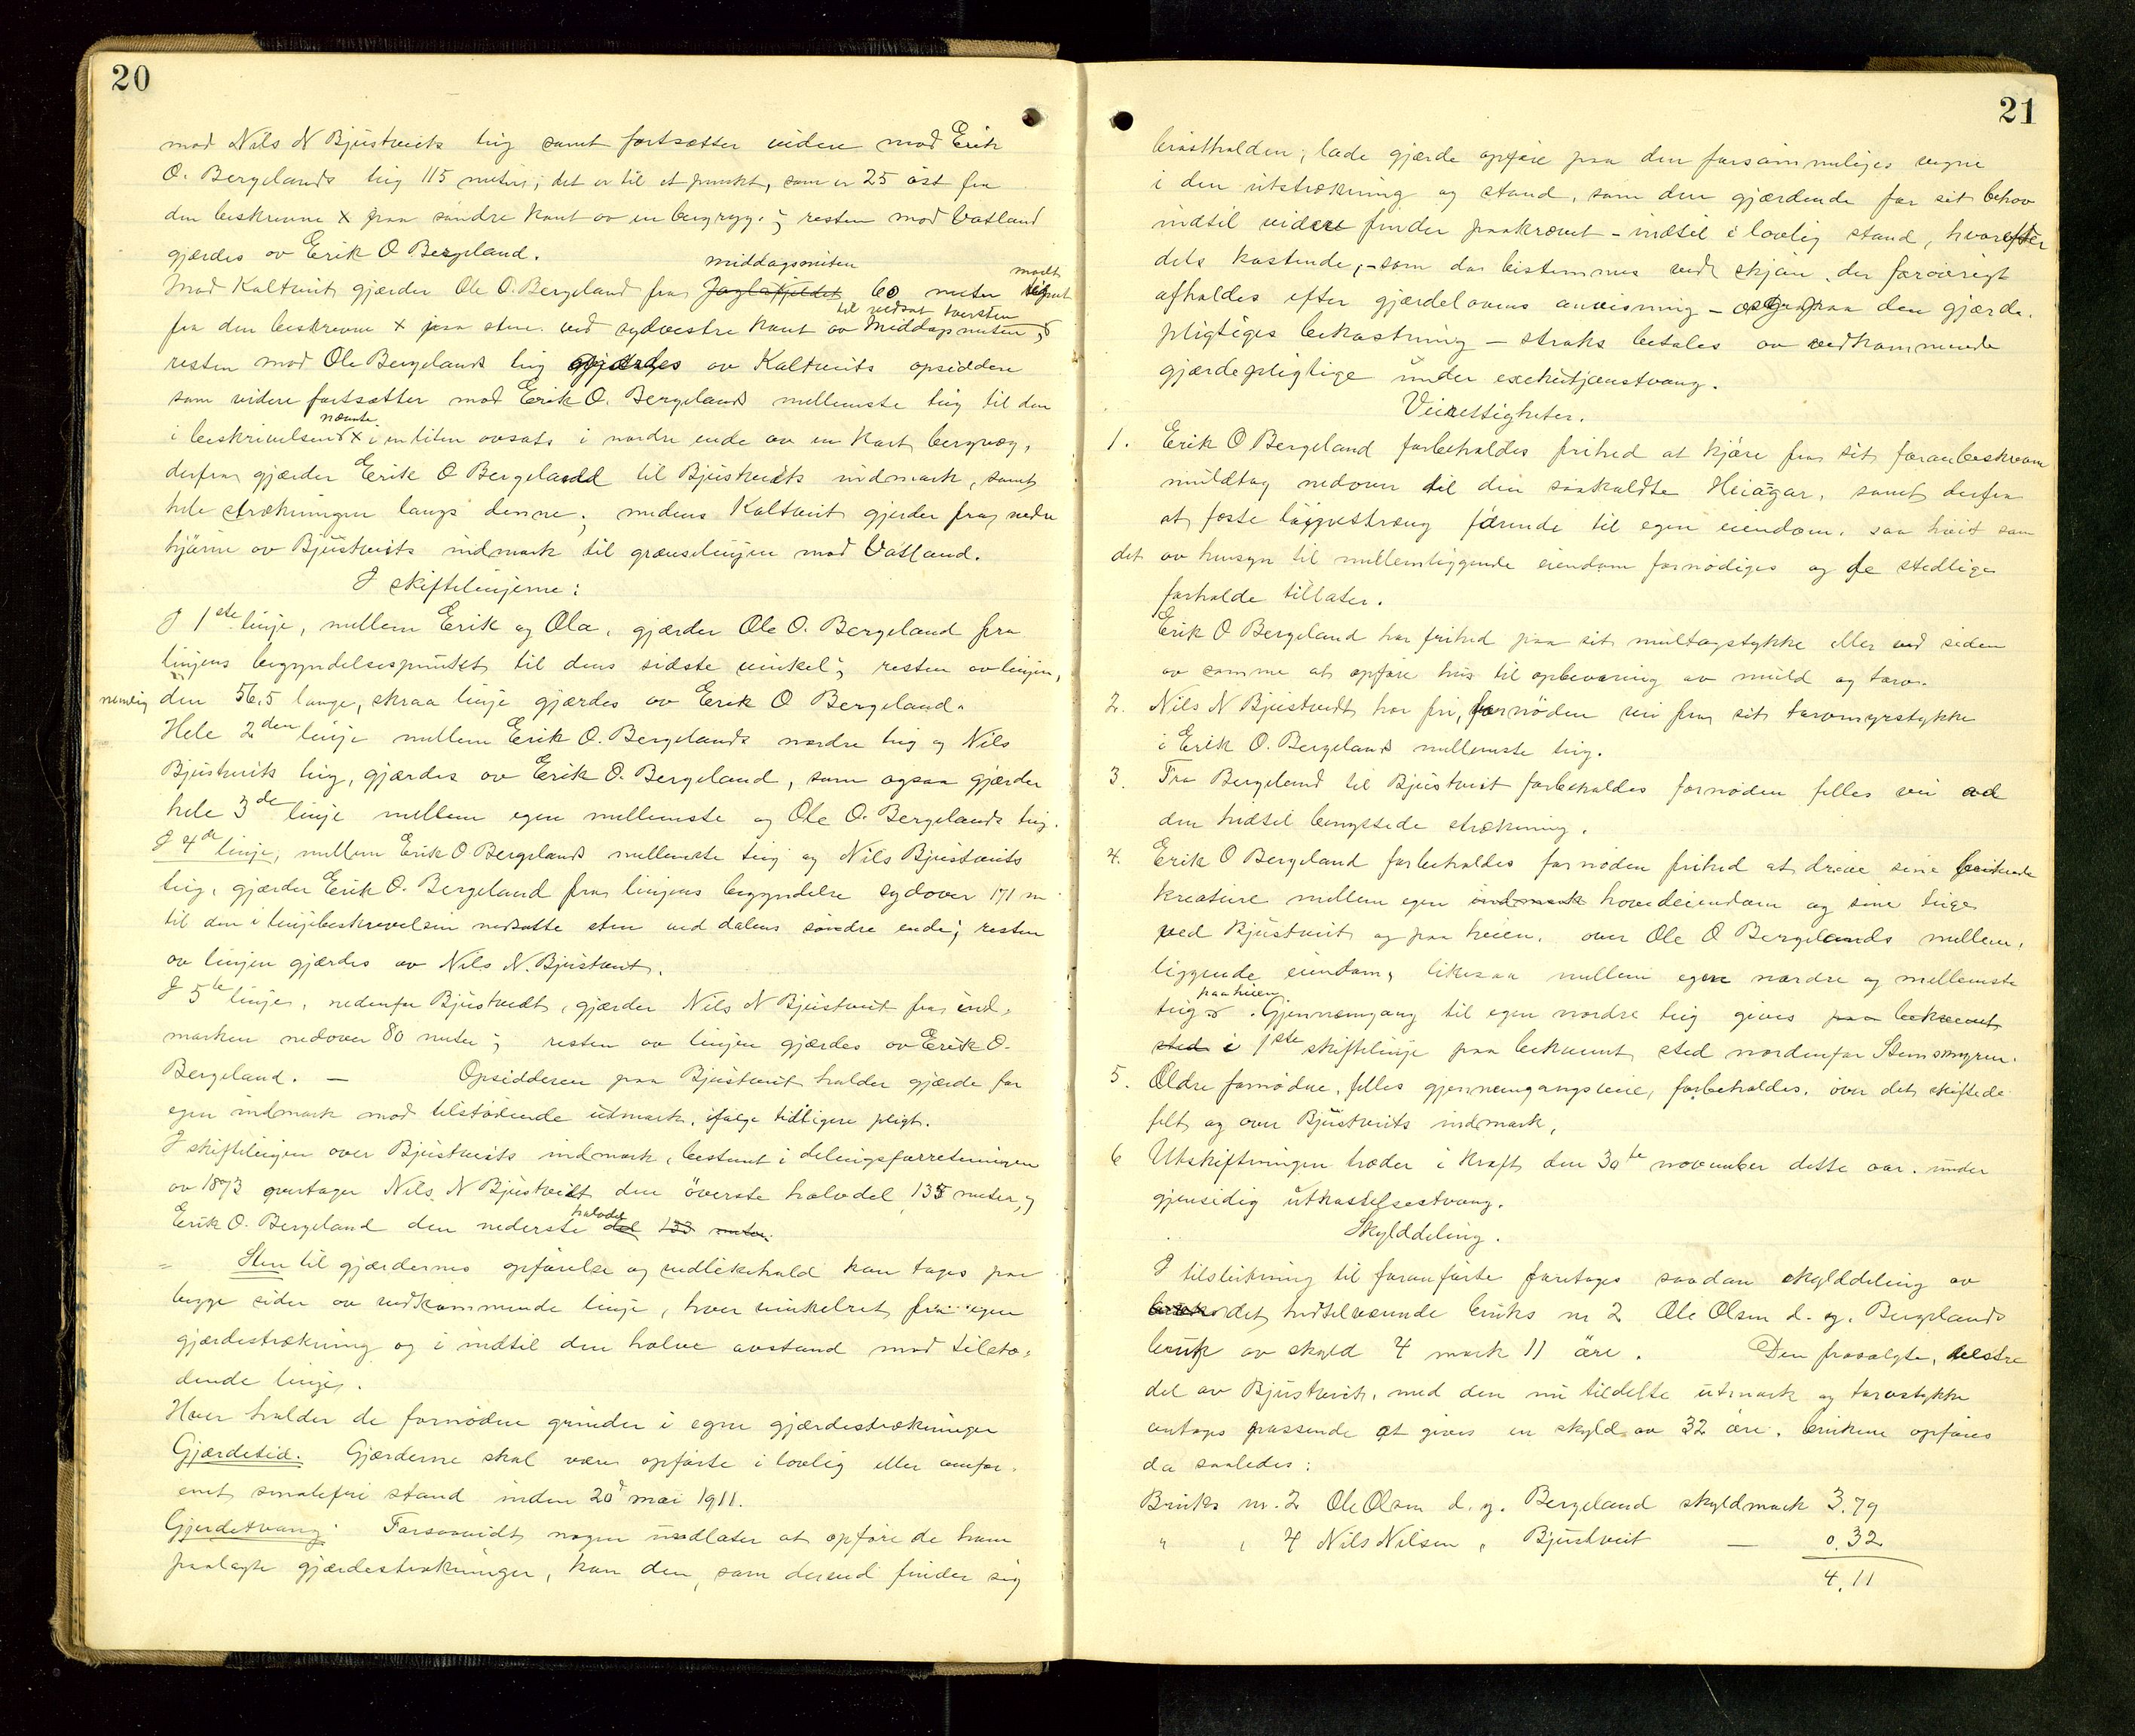 20
mod Nils N Bjustveits teig samt fortsætter videre mod Erik
O. Bergelands teig 115 meter; det er til et punkt, som er 25 øst fra
den beskrevne x paa søndre kant av en bergryg.; resten mod Vatland
gjærdes av Erik O Bergeland.
middagsnuten
Mod Kaltveit gjærder Ole O. Bergeland fra Jaglafjeldet 60 meter
til nedsat tversten
fra den beskrevne x paa sten ved sydvestre kant av Middagsnuten;
resten mod Ole Bergelands teig gjærdes av Kaltveits opsiddere
som videre fortsætter mod Erik O. Bergelands mellemste teig til den
nævnte
i beskrivelsen x i en liten avsats i nordre ende av en kort bergvæg,
derfra gjærder Erik O Bergeland til Bjustveits indmark, samt
hele strækningen langs denne; medens Kaltveit gjerder fra nedre
hjørne av Bjustveits indmark til grænselinjen mod Vatland.
I skiftelinjerne:
I 1ste linje, mellem Erik og Ola, gjærder Ole O. Bergeland fra
linjens begyndelsespunkt til dens sidste vinkel; resten av linjen,
nemlig den 56,5 lange, skraa linje gjærdes av Erik O Bergeland.
Hele 2den linje mellem Erik O. Bergelands nordre teig og Nils
Bjustveits teig, gjærdes av Erik O. Bergeland, som ogsaa gjærder
hele 3de linje mellem egen mellemste og Ole O. Bergelands teig.
I 4de linje, mellem Erik O Bergelands mellemste teig og Nils Bjustveits
teig, gjærder Erik O. Bergeland fra linjens begyndelse sydover 171 m
til den i linjebeskrevelsen nedsatte sten ved dalens søndre ende; resten
av linjen gjærdes av Nils N. Bjustveit.
I 5te linje, nedenfor Bjustvedt, gjærder Nils N Bjustveit fra ind-
marken nedover 80 meter; resten av linjen gjærdes av Erik O.
Bergeland. — Opsidderen paa Bjustveit holder gjærde for
egen indmark mod tilstødende utmark, ifølge tidligere pligt.
I skiftelinjen over Bjustveits indmark, bestemt i delingsforretningen
av 1873 overtager Nils N Bjustveit den øverste halvdel, 135 meter, og
halvdel
Erik O. Bergeland den nederste del 133 meter.
Sten til gjærdernes opførelse og vedlikehold kan tages paa
begge sider av vedkommende linje, hver vinkelret fra egen
gjærdestrækning og i indtil den halve avstand mod tilstø-
dende linje.
Hver holder de fornødne grinder i egne gjærdestrækninger
Gjærdetid. Gjærderne skal være opførte i lovlig eller omfor-
enet smalefri stand inden 20d mai 1911.
Gjerdetvang. Forsaavidt nogen undlater at opføre de ham
paalagte gjærdestrækninger, kan den, som derved finder sig
21
brøstholden, lade gjærde opføre paa den forsømmeliges vegne
i den utstrækning og stand, som den gjærdende for sit behov
indtil videre finder paakrævet - indtil i lovlig stand, hvorefter
dels kostende, - som da bestemmes ved skjøn, der forøvrigt
afholdes efter gjærdelovens anvisning - paa den gjærde-
pligtiges bekostning - straks betales av vedkommende
gjærdepligtige under exekutjonstvang.
Veirettigheter.
1. Erik O Bergeland forbeholdes frihed at kjøre fra sit foranbeskrevne
muldtag nedover til den saakaldte Heiagar, samt derfra
at fæste løypestræng førende til egen eiendom, saa høit som
det av hensyn til mellemliggende eiendom fornødiges og de stedlige
forholde tillater.
Erik O Bergeland har frihed paa sit muldtagstykke eller ved siden
av samme at opføre hus til opbevaring av muld og torv.
2. Nils N Bjustvedt har fri, fornøden vei fra sit torvmyrstykke
i Erik O. Bergelands mellemste teig.
3. Fra Bergeland til Bjustveit forbeholdes fornøden felles vei ad
den hidtil benyttede strækning.
4. Erik O Bergeland forbeholdes fornøden frihed at drive sine beitende
kreature mellem egen indmark hovedeiendom og sine teige
ved Bjustveit og paa heien, over Ole O Bergelands mellem-
liggende eiendom, likesaa mellem egen nordre og mellemste
paa heien
teig. Gjennemgang til egen nordre teig gives paa bekvemt
sted i 1ste skiftelinje paa bekvemt sted nordenfor Stemsmyren.
5. Ældre fornødne, felles gjennemgangsveie, forbeholdes, over det skiftede
felt og over Bjustveits indmark,
6 Utskiftningen træder i kraft den 30te november dette aar, under
gjensidig utkastelsestvang.
Skylddeling.
I tilslutning til foranførte foretages saadan skylddeling av
det hidtilværende bruks nr 2 Ole Olsen d. y. Bergelands
bruk av skyld 4 mark 11 øre. Den frasolgte, vestre
del av Bjustveit, med den nu tildelte utmark og torvstykke
antages passende at gives en skyld av 32 øre. Brukene opføres
da saaledes:
Bruks nr. 2 Ole Olsen d. y. Bergeland skyldmark 3.79
" " 4 Nils Nilsen " Bjustveit — 0.32
4.11